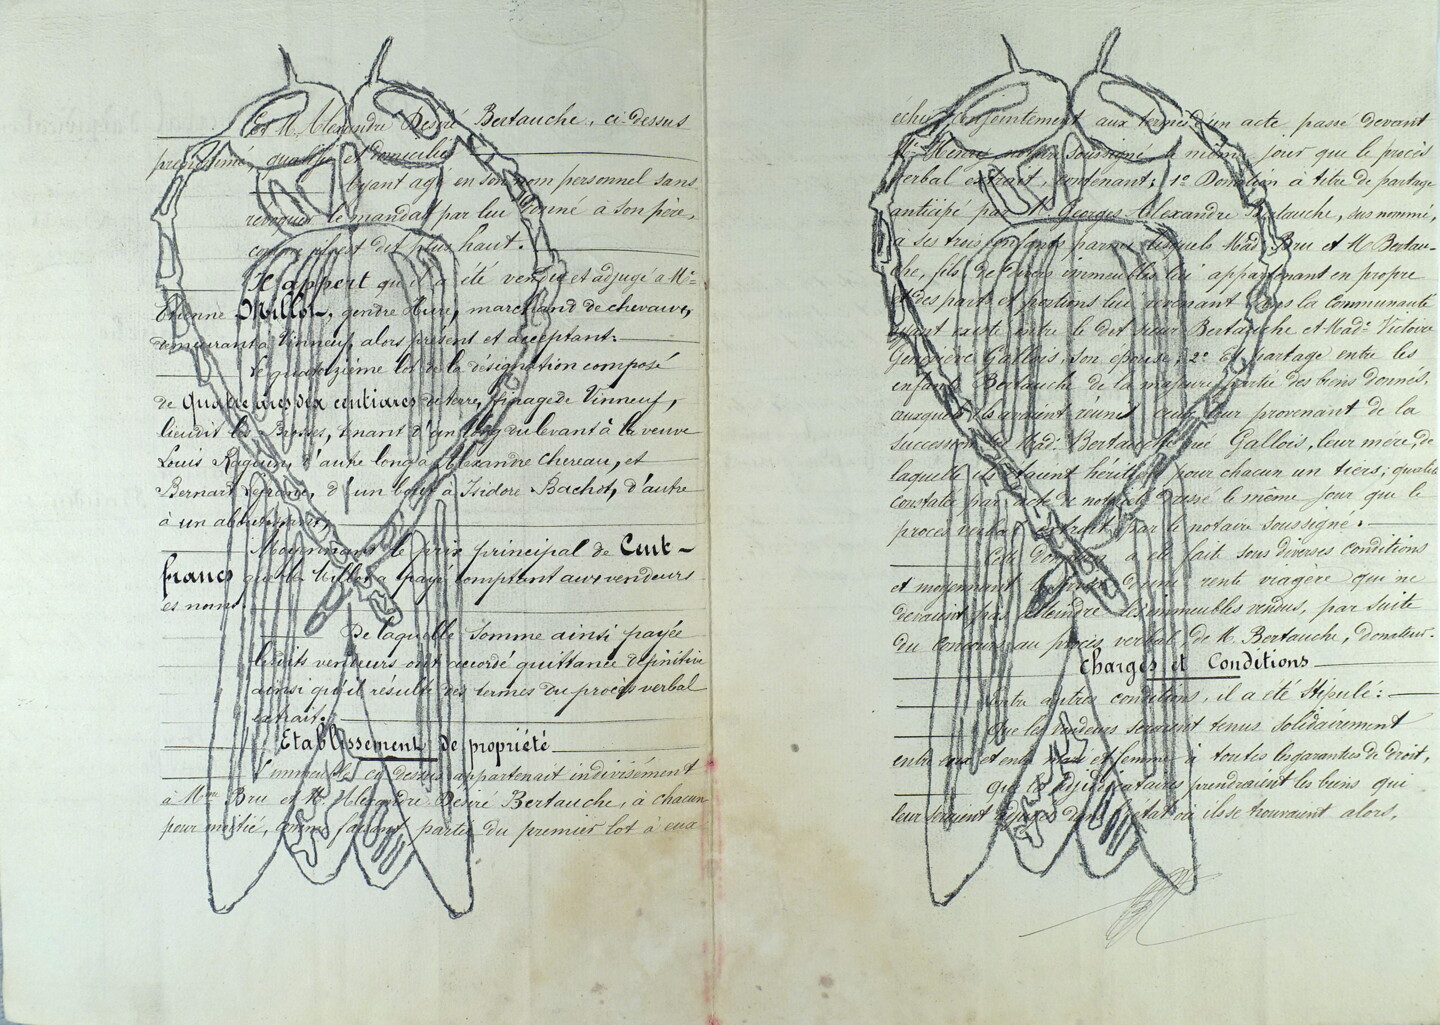 Et M. Alexandre Désiré Bertauche, ci-dessus
prénommé, qualifié et domicilié
Ayant agi en son nom personnel sans
révoquer le mandat par lui donné à son père,
comme il est dit plus haut.
Il appert qu'il a été vendu et adjugé à Mr
Etienne Millot, gendre Huré, marchand de chevaux,
demeurant à Vinneuf, alors présent et acceptant:
Le quatorzième lot de la désignation composé
de Quatre ares dix centiares de terre, finage de Vinneuf,
lieudit les Brosses, tenant d'un long au levant à la veuve
Louis Ragoin, d'autre long à Alexandre Chereau, et
Bernard, d'un bout à Isidore Bachot, d'autre
à un aboutissant,
Moyennant le prix principal de Cent
francs que Mr Millot a payé comptant aux vendeurs
es noms.
De laquelle somme ainsi payée
lesdits vendeurs ont accordé quittance définitive
ainsi qu'il résulte des termes du procès verbal
extrait.
Etablissement de propriété
L'immeuble ci dessus appartenait indivisément
à Mme Bru et M. Alexandre Désiré Bertauche, à chacun
pour moitié, comme faisant partie du premier lot à eux
échu conjointement aux termes d'un acte passé devant
Me Henry notaire soussigné le même jour que le procès
verbal extrait, contenant: 1º Donation à titre de partage
anticipé par M. Georges Alexandre Bertauche, sus nommé,
à ses trois enfants parmi lesquels Made Bru et M. Bertau-
che, fils de divers immeubles lui appartenant en propre
et des parts et portions lui revenant dans la Communauté
ayant existé entre le dit sieur Bertauche et Made Victoire
Geneviève Gallois, son épouse; 2º Et partage entre les
enfants Bertauche de la majeure partie des biens donnés,
auxquels ils avaient réuni ceux leur provenant de la
succession de Made Bertauche née Gallois, leur mère, de
laquelle ils étaient héritiers pour chacun un tiers; qualité
constatée par acte de notoriété dressé le même jour que le
procès verbal extrait par le notaire soussigné.
Cette donation a été faite sous diverses conditions
et moyennant le service d'une rente viagère qui ne
devaient pas atteindre les immeubles vendus, par suite
du concours au procès verbal de M. Bertauche, donateur.
Charges et Conditions
Entre autres conditions, il a été stipulé:
Que les vendeurs seraient tenus solidairement
entre eux et entre mari et femme à toutes les garanties de droit,
que les adjudicataires prendraient les biens qui
leur seraient adjugés dans l'état où ils se trouvaient alors,